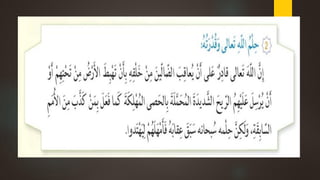 2 حِلْمُ اللَّهِ تَعالى وَقُدْرَتُهُ:
إِنَّ اللَّهَ تَعالى قادِرٌ عَلى أَنْ يُعاقِبَ الضّالّينَ مِنْ خَلْقِهِ بِأَنْ تَهْبِطَ الْأَرْضُ مِنْ تَحْتِهِمْ أَوْ
أَنْ يُرْسِلَ عَلَيْهِمُ الرّيحَ الشَّديدَةَ الْمُحَمَّلَةَ بِالْحَصى الْمُهْلِكَةَ كَما فَعَلَ بِمَنْ كَذَّبَ مِنَ الْأُمَمِ
السّابِقَةِ، وَلَكِنَّ حِلْمَه سُبحانه سَبَقَ عِقابَهُ فَأَمْهَلَهُمْ لِيَهْتَدوا.